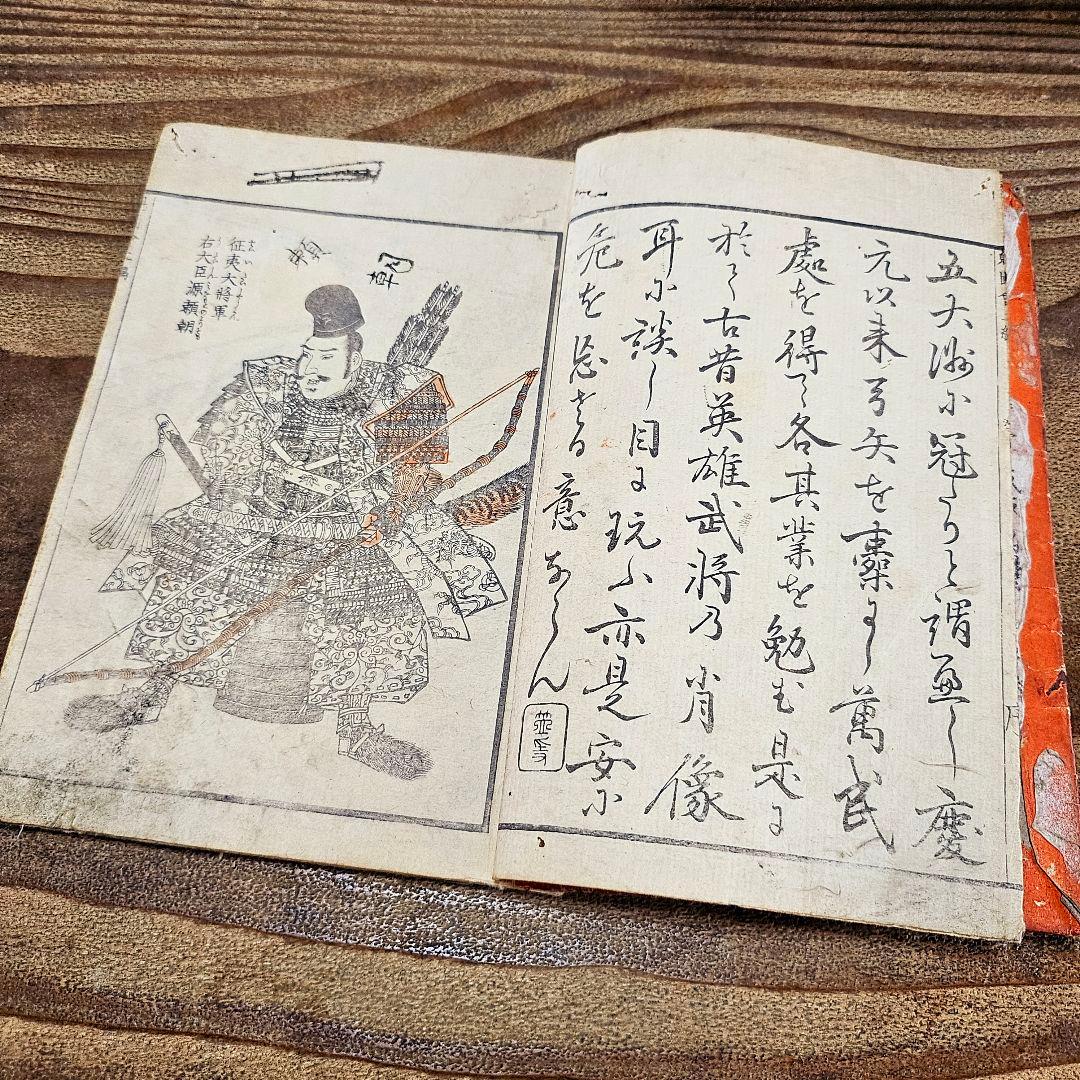 五大洲に冠たりと謂へし慶
元以来弓矢を櫜にし萬民
處を得て各其業を勉む是に
於て古昔英雄武将の肖像
耳に談し目に玩ふ亦是安に
危を忘さる意ならん
頼朝
征夷大將軍
右大臣源頼朝